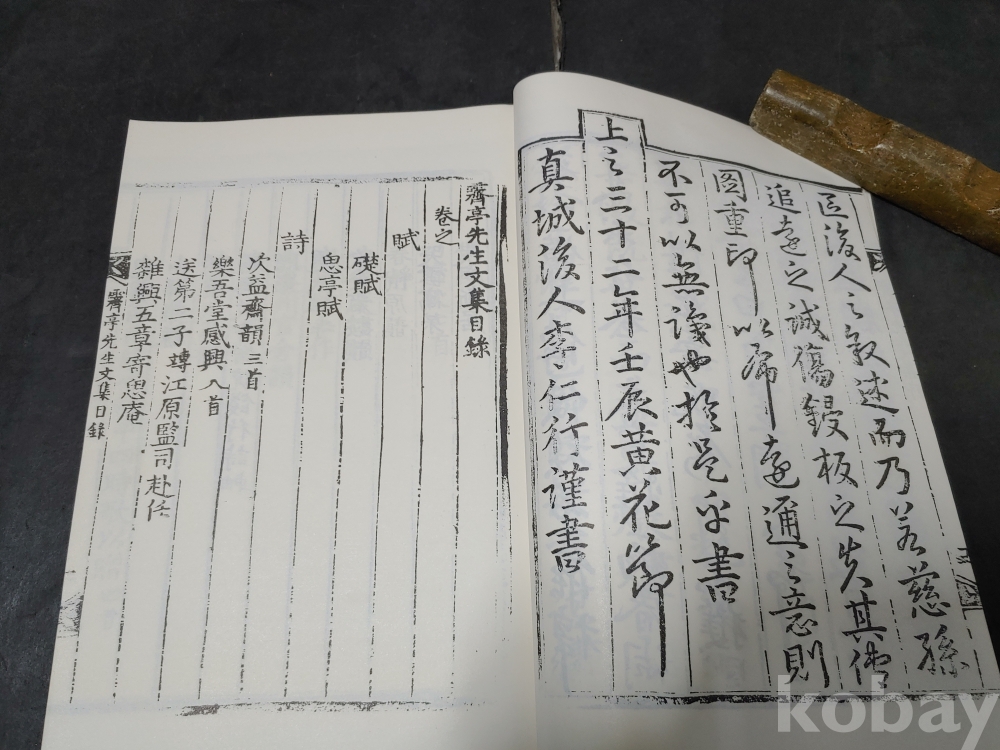 叵後人之敦述而乃若慈孫
追遠之誠傷鋟板之失其傳
圖重印以廣遠通之意則
不可以無識也於是乎書
上之三十二年壬辰黃花節
真城後人李仁行謹書
霽亭先生文集目錄
卷之
賦
礎賦
思亭賦
詩
次益齋韻三首
樂吾堂感興八首
送第二子竱江原監司赴任
雜興五章寄思庵
霽亭先生文集目錄
kobay